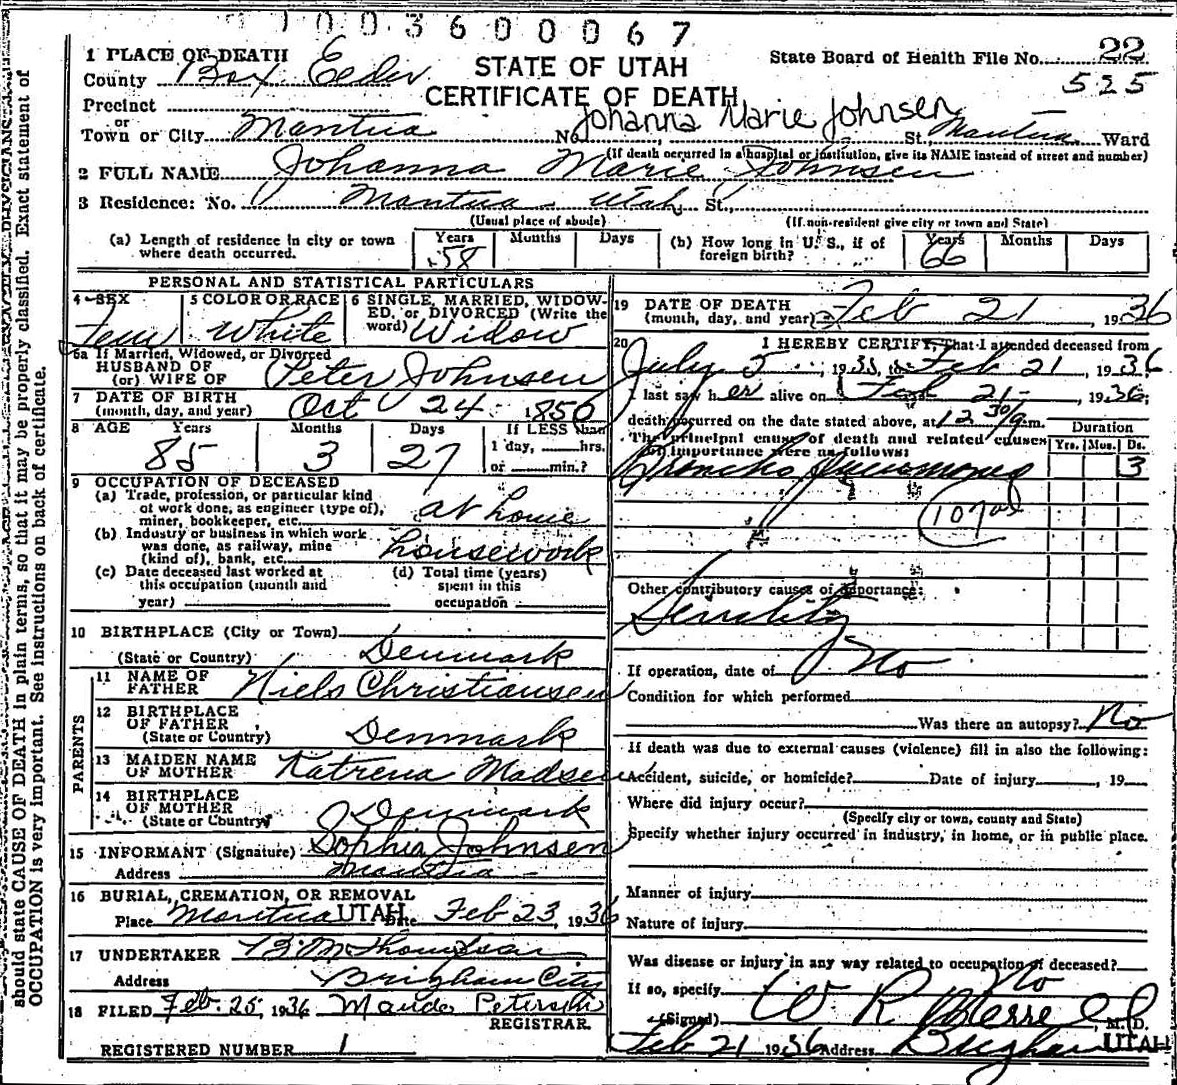 1003600067
1 PLACE OF DEATH
County Box Elder
STATE OF UTAH
CERTIFICATE OF DEATH
State Board of Health File No. 22
525
Precinct
or
Town or City Mantua No. Johanna Marie Johnsen St. Mantua Ward
(If death occurred in a hospital or institution, give its NAME instead of street and number)
2 FULL NAME Johanna Marie Johnsen
3 Residence: No. Mantua Utah St.,
(Usual place of abode) (If non-resident give city or town and State)
(a) Length of residence in city or town where death occurred. Years 58 Months Days
(b) How long in U. S., if of foreign birth? Years 66 Months Days
PERSONAL AND STATISTICAL PARTICULARS
4 SEX Fem
5 COLOR OR RACE White
6 SINGLE, MARRIED, WIDOWED, or DIVORCED (Write the word) Widow
6a If Married, Widowed, or Divorced
HUSBAND OF
(or) WIFE OF Peter Johnsen
7 DATE OF BIRTH
(month, day, and year) Oct 24 1850
8 AGE Years 85 Months 3 Days 27 If LESS than 1 day, hrs. or min.?
9 OCCUPATION OF DECEASED
(a) Trade, profession, or particular kind of work done, as engineer (type of), miner, bookkeeper, etc. at home
(b) Industry or business in which work was done, as railway, mine (kind of), bank, etc. housework
(c) Date deceased last worked at this occupation (month and year)
(d) Total time (years) spent in this occupation
10 BIRTHPLACE (City or Town)
(State or Country) Denmark
PARENTS
11 NAME OF FATHER Niels Christiansen
12 BIRTHPLACE OF FATHER
(State or Country) Denmark
13 MAIDEN NAME OF MOTHER Katrena Madsen
14 BIRTHPLACE OF MOTHER
(State or Country) Denmark
15 INFORMANT (Signature) Sophia Johnsen
Address Mantua
16 BURIAL, CREMATION, OR REMOVAL
Place Mantua UTAH Date Feb 23, 1936
17 UNDERTAKER
Address Brigham City
18 FILED Feb. 25, 1936 Maude Petersen
REGISTRAR.
REGISTERED NUMBER 1
19 DATE OF DEATH
(month, day, and year) Feb 21 1936
20 I HEREBY CERTIFY, That I attended deceased from
July 5, 1935, to Feb 21, 1936
I last saw her alive on Feb 21, 1936;
death occurred on the date stated above, at 12 30/ m.
The principal cause of death and related causes of importance were as follows:
Duration
Yrs. Mos. Ds.
Broncho Pneumonia 3
107
Other contributory causes of importance:
Senility
If operation, date of No
Condition for which performed
Was there an autopsy? No
If death was due to external causes (violence) fill in also the following:
Accident, suicide, or homicide? Date of injury , 19
Where did injury occur?
(Specify city or town, county and State)
Specify whether injury occurred in industry, in home, or in public place.
Manner of injury
Nature of injury
Was disease or injury in any way related to occupation of deceased?
If so, specify No
(Signed) W R Merrell, M. D.
Feb 21 1936 Address Brigham UTAH
should state CAUSE OF DEATH in plain terms, so that it may be properly classified. Exact statement of
OCCUPATION is very important. See instructions on back of certificate.